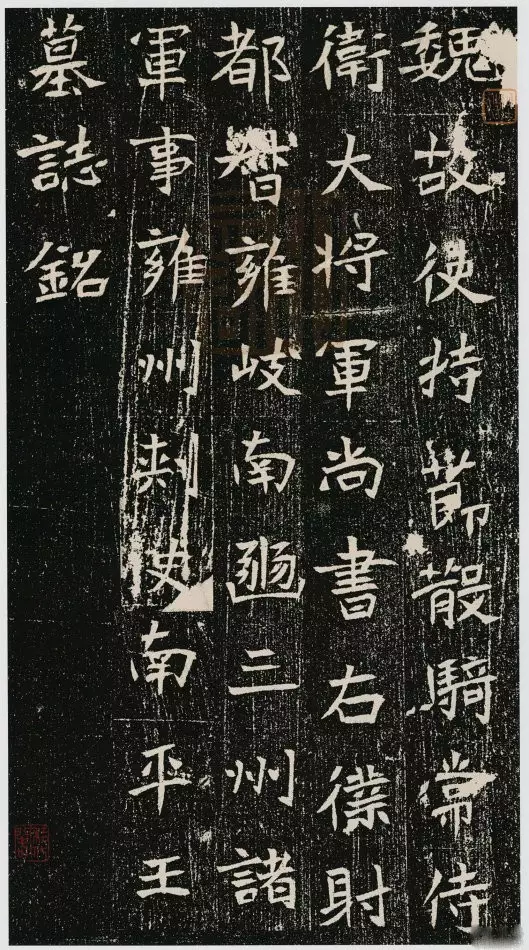 魏故使持節散騎常侍
衛大将軍尚書右僕射
都督雍岐南豳三州諸
軍事雍州刾史南平王
墓誌銘